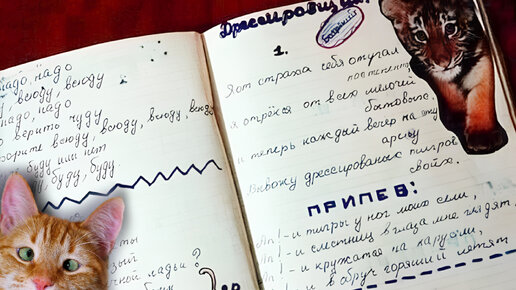 надо, надо
, всюду, всюду
надо, надо
верить чуду
ворите всюду, всюду, всюду, всюду
буду или нет
буду, буду, буду
ты
ной ладьи?
Дрессировщица.
Боярский
1.
Я от страха себя отучал
постепенно
я отрёкся от всех мелочей
бытовых.
и теперь каждый вечер на эту
арену
Вывожу дрессированых тигров
своих.
ПРИПЕВ:
Ап! - и тигры у ног моих сели,
Ап! - и с лестниц в глаза мне глядят,
Ап! - и кружатся на каруселе,
Ап! - и в обруч горящий летят